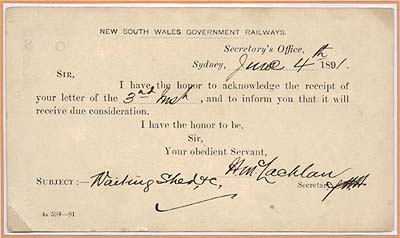 NEW SOUTH WALES GOVERNMENT RAILWAYS.
Secretary's Office,
Sydney, June 4th 1891.
SIR,
I have the honor to acknowledge the receipt of
your letter of the 3rd Inst, and to inform you that it will
receive due consideration.
I have the honor to be,
Sir,
Your obedient Servant,
H McLachlan
Secretary
SUBJECT:—Waiting Shed &c,